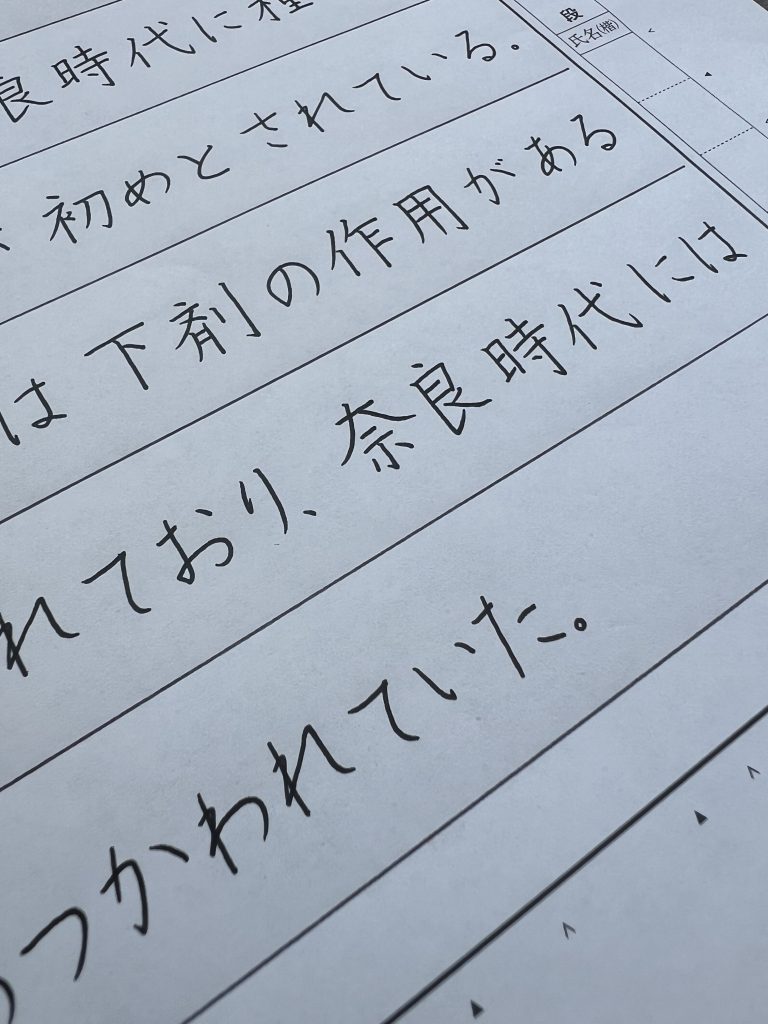 良時代に種
初めとされている。
は下剤の作用がある
れており、奈良時代には
つかわれていた。
段
氏名(楷)